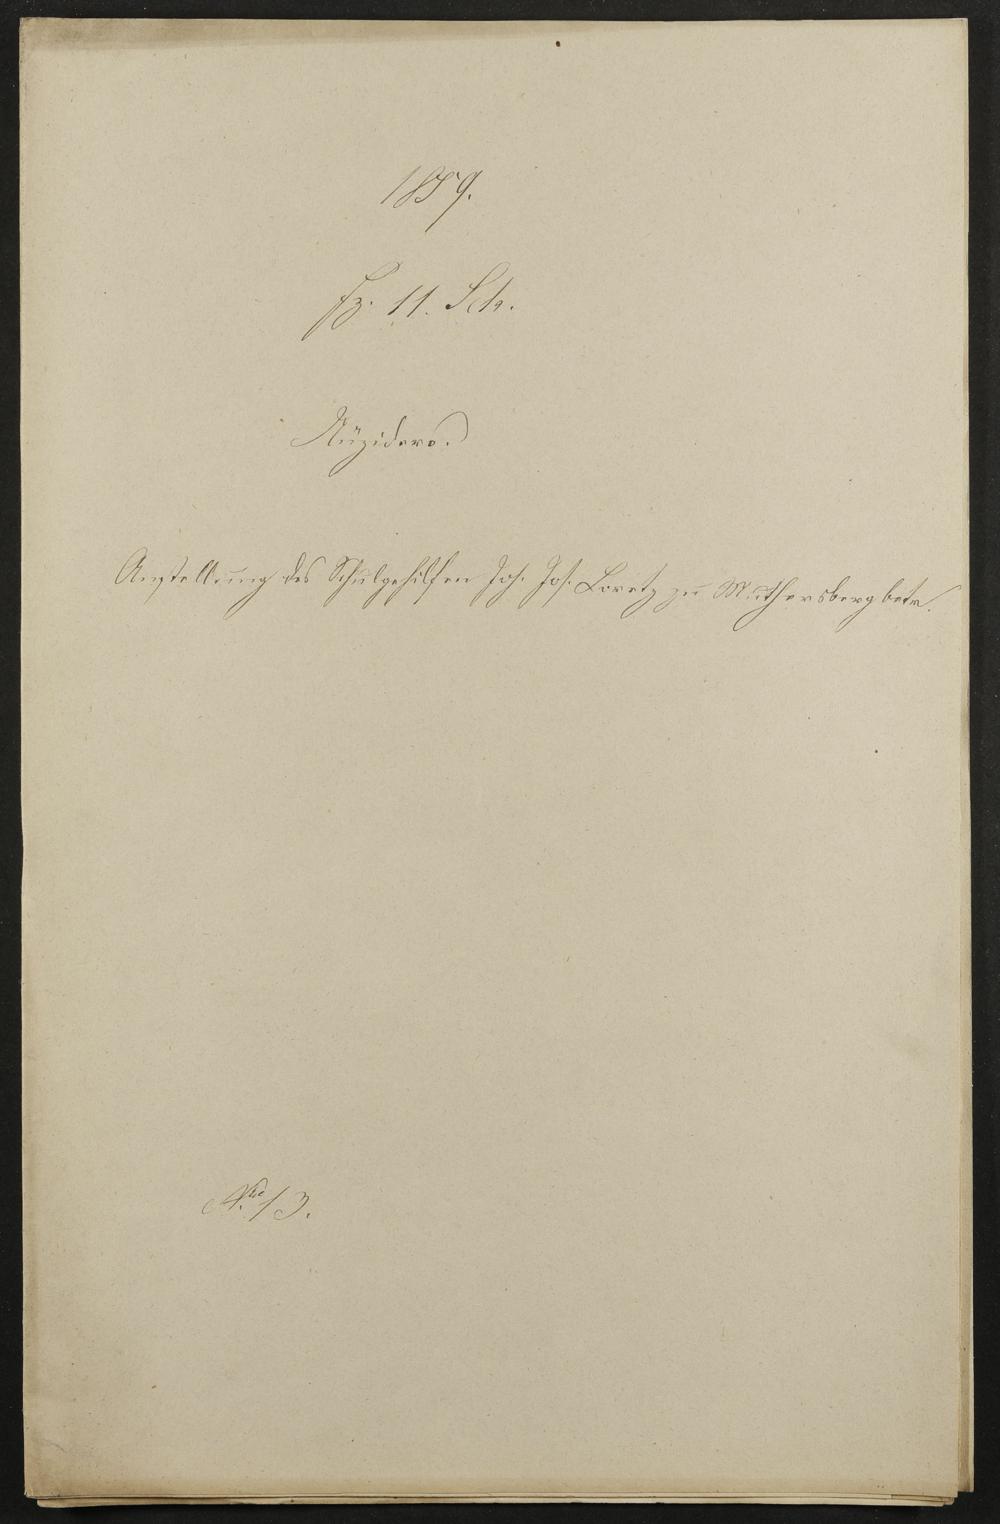 1859.
Fz. 11. Sch.
Nüziders.
Anstellung des Schulgehilfen Joh. Jos. Loretz zu Muthersberg betr.
Nro 13.